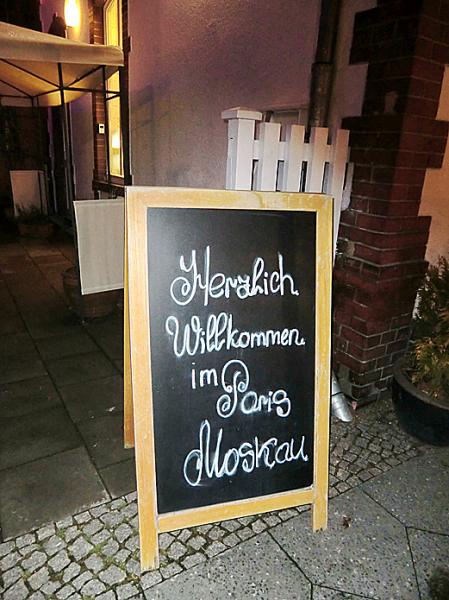 Herzlich
Willkommen
im Paris
Moskau